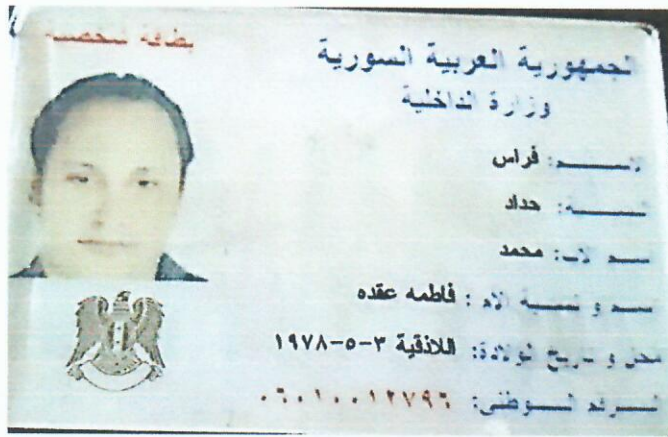 بطاقة شخصية
الجمهورية العربية السورية
وزارة الداخلية
الاســـــم: فراس
النســـــبة: حداد
اسم الاب: محمد
اسم و نسبة الام : فاطمه عقده
محل و تاريخ الولادة: اللاذقية ٣-٥-١٩٧٨
الـــرقم الـــوطني: ٠٦٠١٠٠١٢٧٩٦